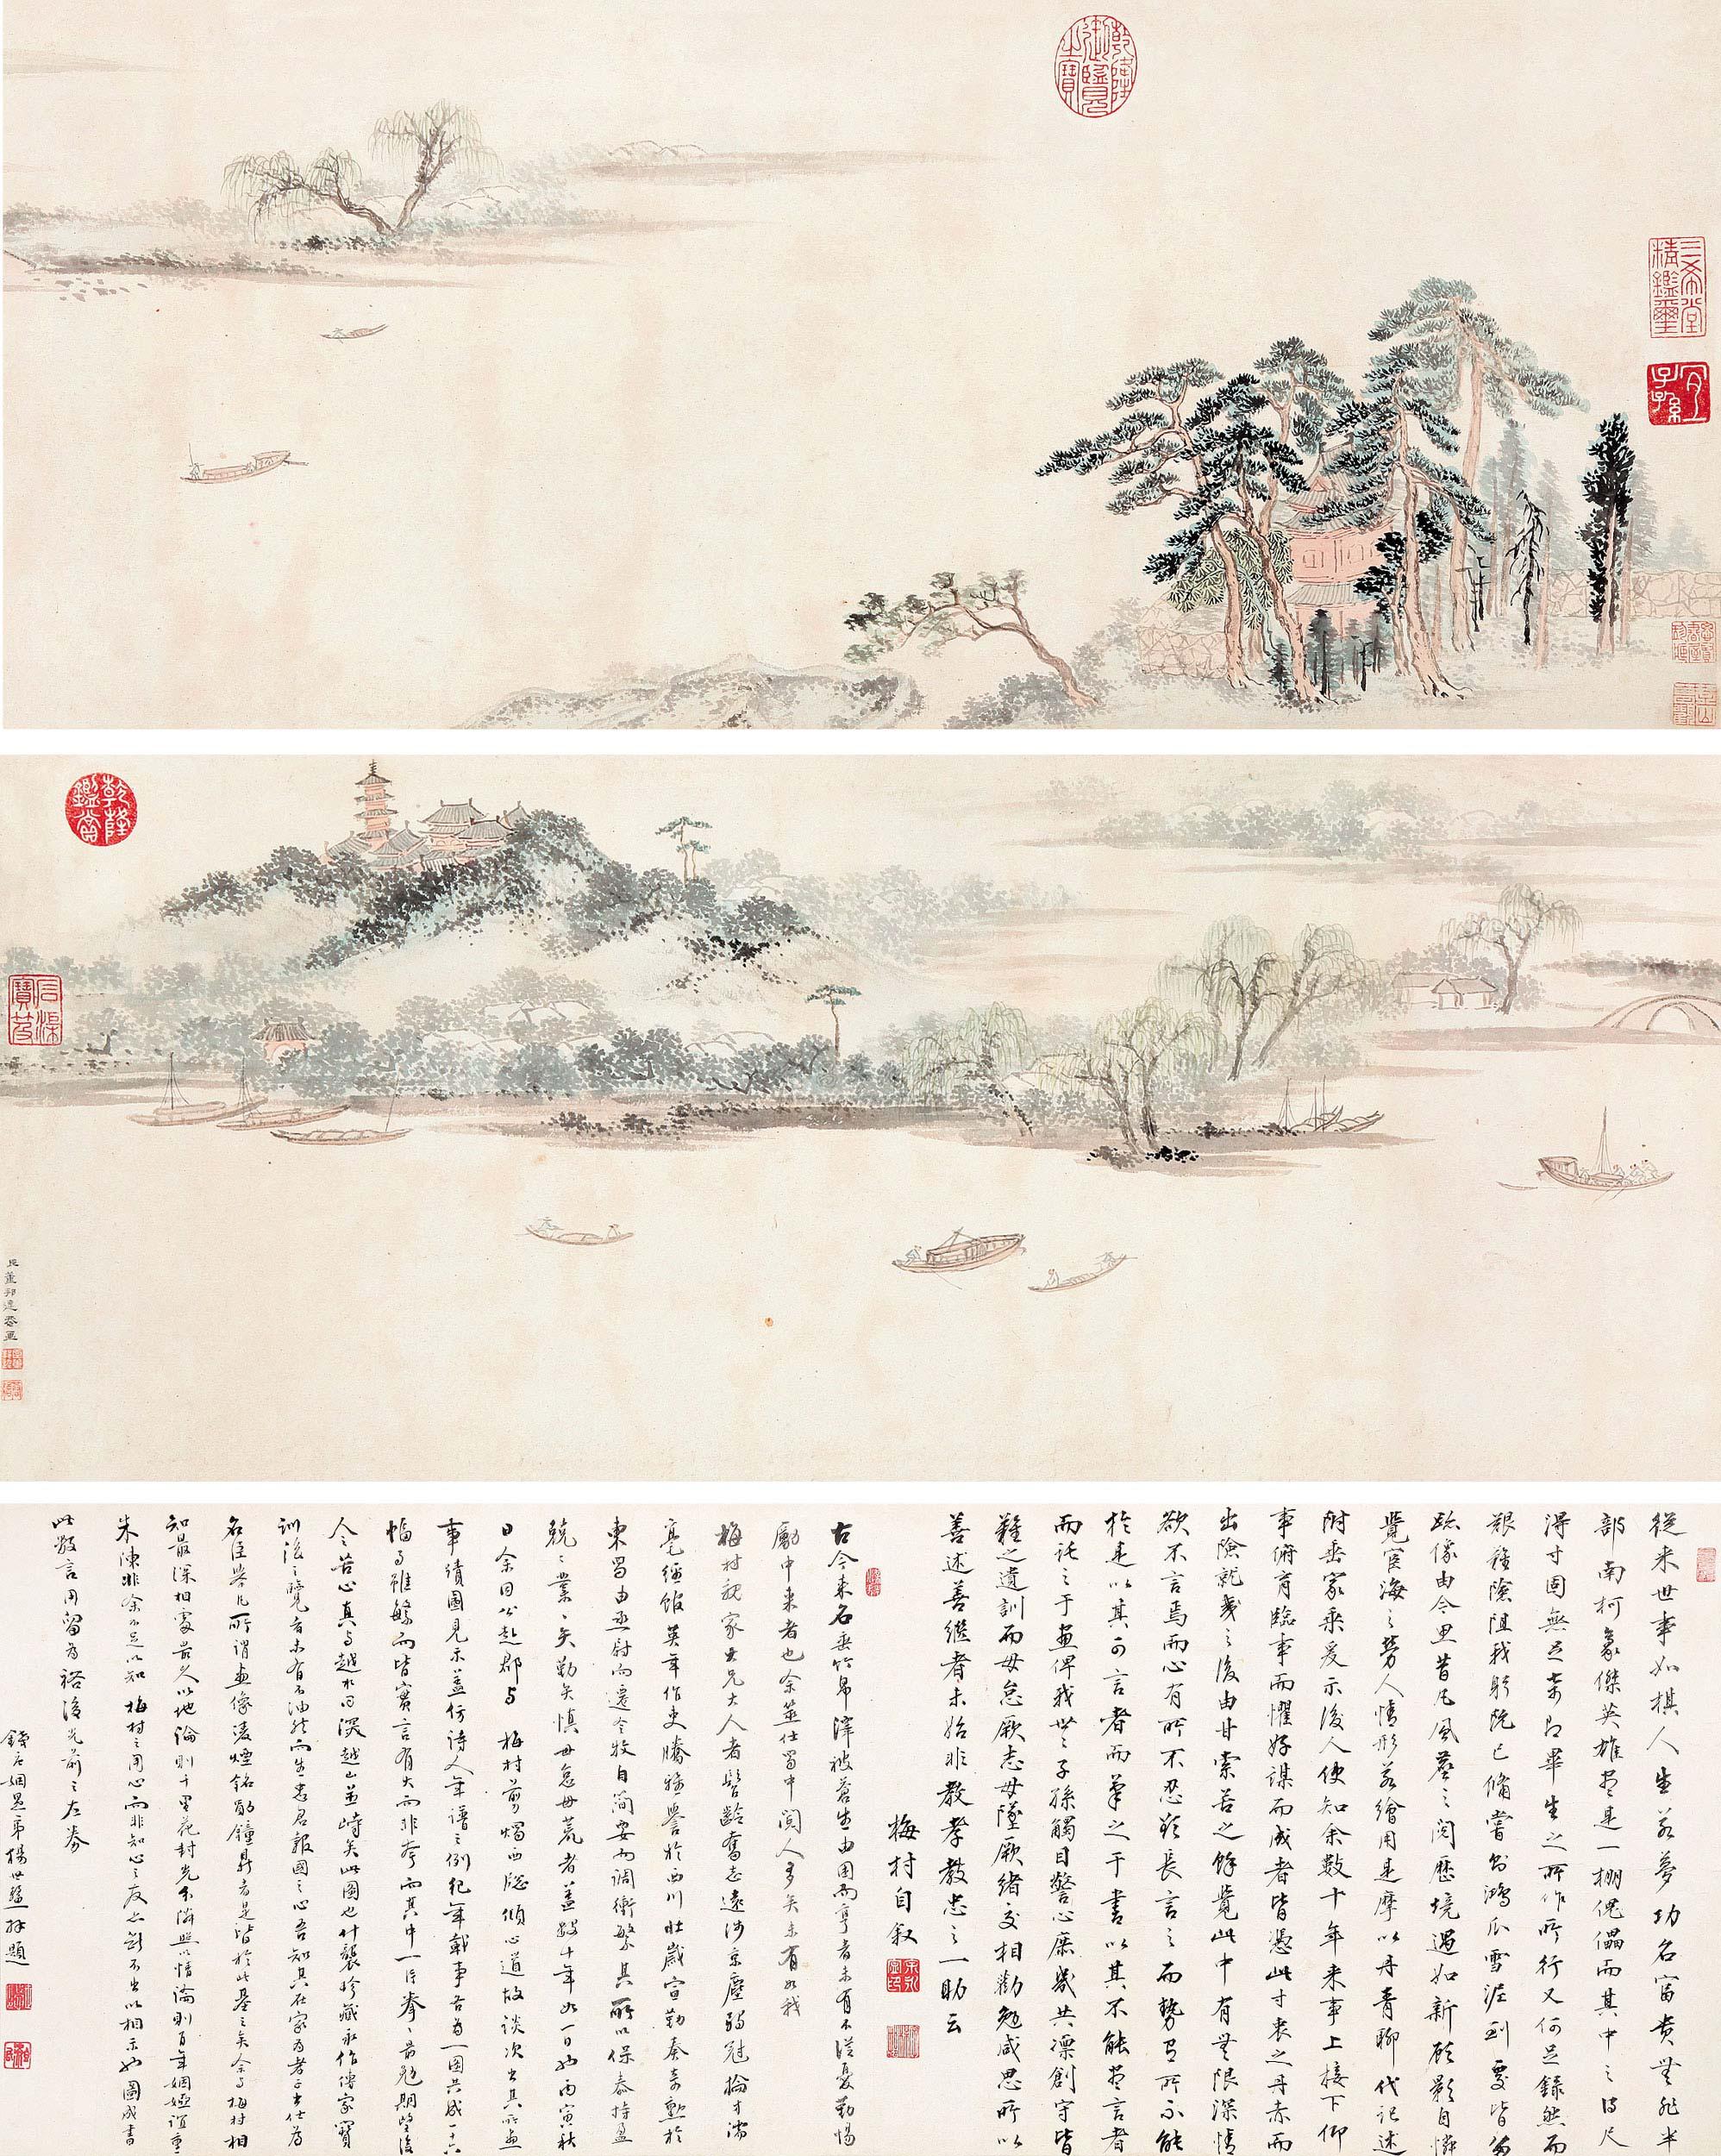 乾隆御覽之寶
三希堂精鑑璽
宜子孫
乾隆鑑賞
石渠寶笈
臣董邦達恭畫
從來世事如棋人生若夢功名富貴無非半
部南柯豪傑英雄盡是一棚傀儡而其中之得尺
得寸固無足奇即畢生之所作所行又何足錄然而
艱難險阻我躬既已備嘗多鴻爪雪泥到處皆留
跡像由今思昔凡風塵之閱歷境過如新顧影自憐
覺宦海之勞人情形若繪用是摩以丹青聊代記述
附垂家乘爰示後人使知余數十年來事上接下仰
事俯育臨事而懼好謀而成者皆憑此寸衷之丹赤而
出險就夷之後由甘索苦之餘覺此中有無限深情
欲不言焉而心有所不忍欲長言之而勢有所不能
於是以其可言者而筆之于書以其不能盡言者
而託之于畫俾我世世子孫觸目警心庶幾共凜創守皆
難之遺訓而毋怠厥志毋墜厥緒交相勸勉咸思所以
善述善繼者未始非教孝教忠之一助云
梅村自叙
古今來名垂竹帛澤被蒼生由困而亨者未有不從憂勤惕
勵中來者也余筮仕蜀中閱人多矣未有如我
梅村親家世兄大人者髫齡奮志遠涉京塵弱冠掄才濡
毫經館英年作吏騰循譽於西川壯歲宣勤奏奇勳於
東蜀由丞尉而遷令牧自簡要而調衝繁其所以保泰持盈
兢兢業業矢勤矢慎毋怠毋荒者蓋數十年如一日也丙寅秋
日余因公赴郡與梅村剪燭西窗傾心道故談次出其所畫
事績圖見示蓋仿詩人年譜之例紀年載事各為一圖共成一十六
幅事雖繁而皆實言有大而非夸而其中一片拳拳勗勉期望後
人之苦心真與越水同深越山並峙矣此圖也什襲珍藏永作傳家寶
訓後之覽者未有不油然而生忠君報國之心吾知其在家為孝子出仕為
名臣舉凡所謂畫像凌煙銘勳鐘鼎者是皆於此基之矣余與梅村相
知最深相處最久以地論則千里花封光分隣照以情論則百年姻婭誼重
朱陳非余不足以知梅村之用心而非知心之友亦斷不出以相示也圖成書
此數言用留為裕後光前之左券